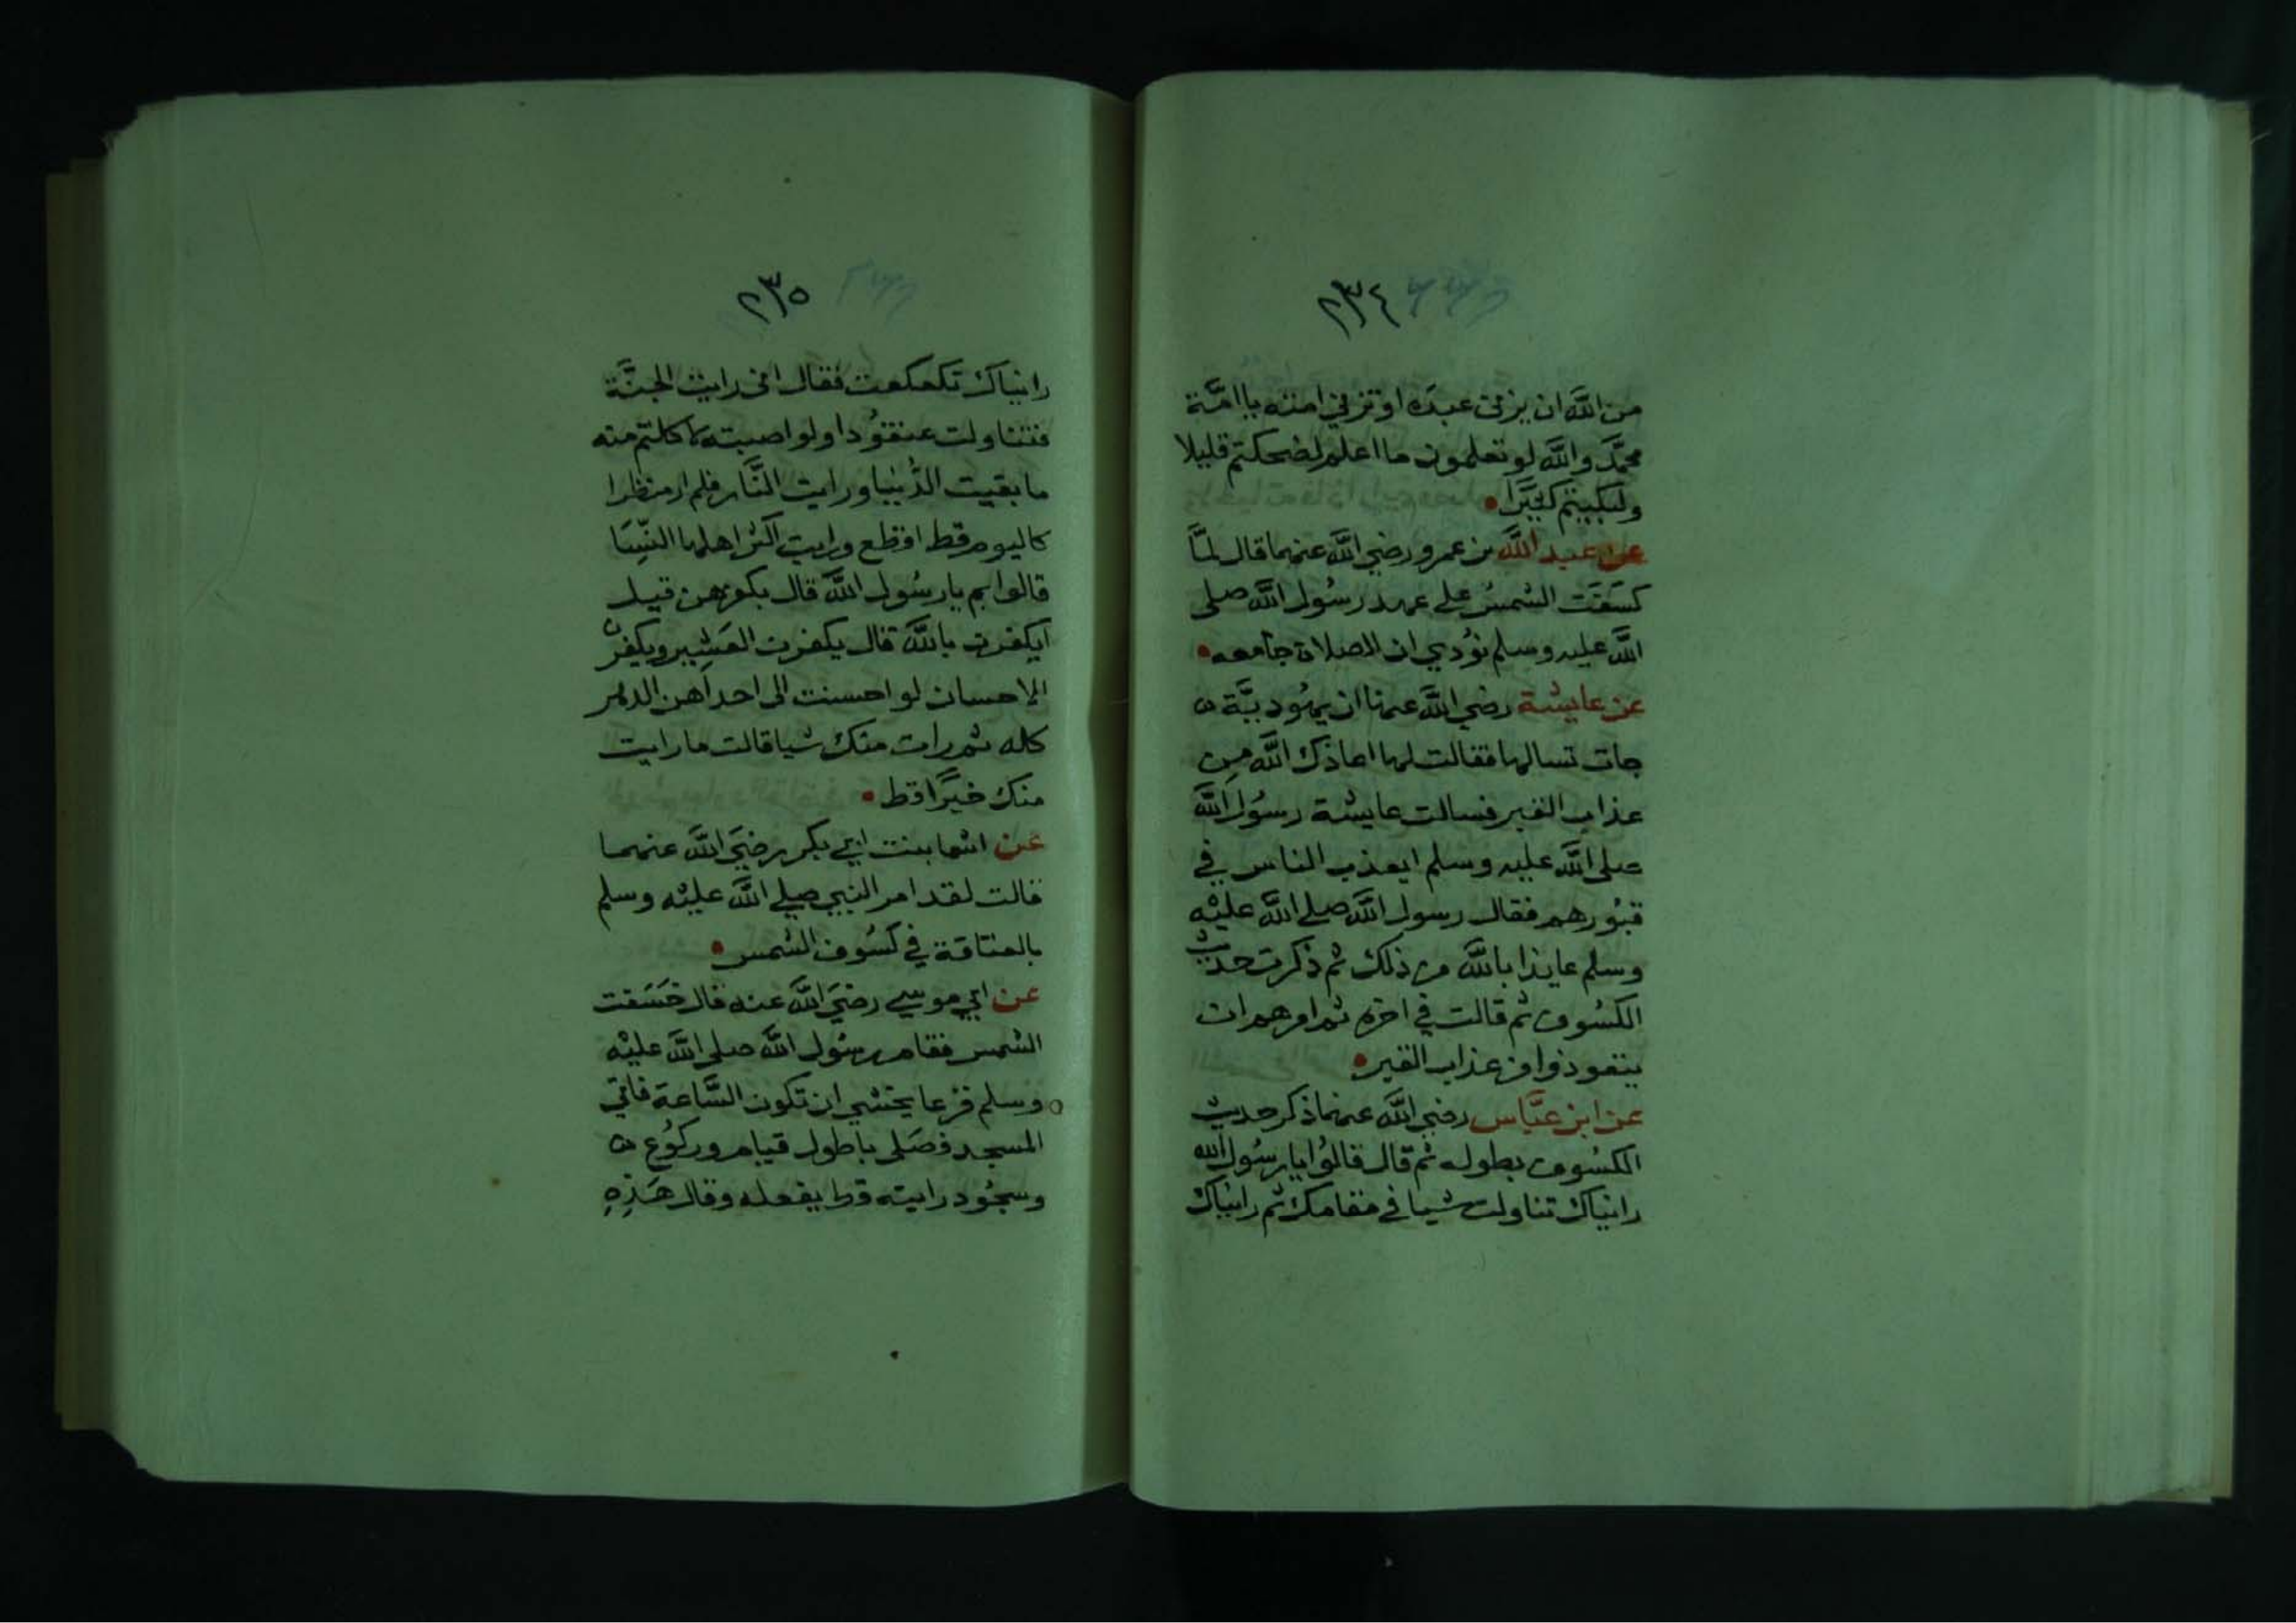 ٢٣٤
من الله ان يزني عبده او تزني امته يا امّة
محمّد والله لو تعلمون ما اعلم لضحكتم قليلا
ولبكيتم كثيرًا
عن عبد الله بن عمرو رضي الله عنهما قال لمّا
كسَفَت الشمسُ على عهد رسُول الله صلى
الله عليه وسلم نوُدي ان الصلاة جامعه
عن عايشة رضي الله عنها ان يهُوديَّة
جات تسالها فقالت لها اعاذك الله من
عذاب القبر فسالت عايشة رسُول الله
صلى الله عليه وسلم ايعذب الناس في
قبُورهم فقال رسول الله صلى الله عليْه
وسلم عايذا بالله من ذلك ثم ذكرت حديث
الكسُوف ثم قالت في اخره ثم امرهم ان
يتعوذوا من عذاب القبر
عن ابن عبَّاس رضي الله عنهما ذكر حديث
الكسُوف بطوله ثم قال قالوُا يا رسُول الله
رايناك تناولت شيا في مقامك ثم رايناك
٢٣٥
رايناك تكعكعت فقال اني رايت الجنَّة
فتناولت عنقوُدا ولو اصبته لاكلتم منه
ما بقيت الدُّنيا ورايت النَّار فلم ار منظرا
كاليوم قط افظع ورايت اكثر اهلها النِّسَا
قالوا بم يا رسُول الله قال بكفرهن قيل
ايكفرن بالله قال يكفرن العَشِير ويكفرن
الاحسان لو احسنت الى احداهن الدهر
كله ثم رات منك شيا قالت ما رايت
منك خيرًا قط
عن اسما بنت ابي بكر رضيَ الله عنهما
قالت لقد امر النبي صلى الله عليْه وسلم
بالعتاقة في كسُوف الشمس
عن ابي موسى رضيَ الله عنه قال خَسَفت
الشمس فقام رسُول الله صلى الله عليْه
وسلم فزعا يخشى ان تكون السَّاعة فاتى
المسجد فصَلى باطول قيام وركوُع
وسجُود رايته قط يفعله وقال هَذِهِ